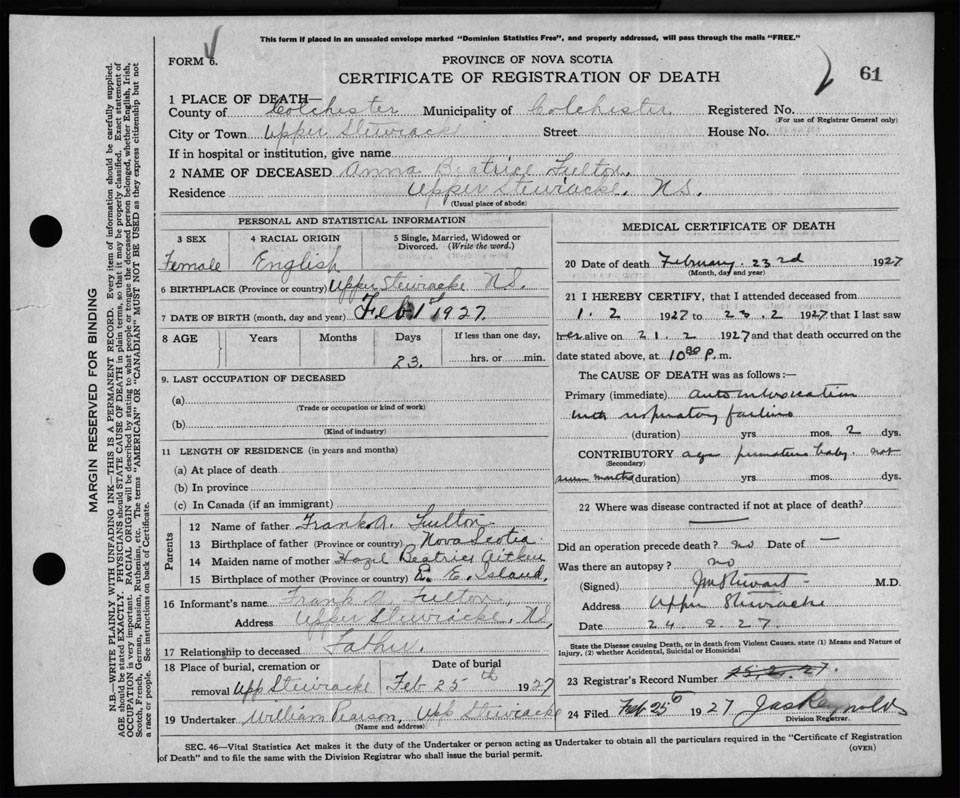 This form if placed in an unsealed envelope marked "Dominion Statistics Free", and properly addressed, will pass through the mails "FREE."
FORM 6.
PROVINCE OF NOVA SCOTIA
CERTIFICATE OF REGISTRATION OF DEATH
61
1 PLACE OF DEATH—
County of Colchester Municipality of Colchester Registered No.
(For use of Registrar General only)
City or Town Upper Stewiacke Street House No.
If in hospital or institution, give name
2 NAME OF DECEASED Anna Beatrice Fulton.
Residence Upper Stewiacke. N.S.
(Usual place of abode)
PERSONAL AND STATISTICAL INFORMATION
3 SEX 4 RACIAL ORIGIN 5 Single, Married, Widowed or Divorced. (Write the word.)
Female English
6 BIRTHPLACE (Province or country) Upper Stewiacke N.S.
7 DATE OF BIRTH (month, day and year) Feb 1st 1927
8 AGE Years Months Days If less than one day,
23. hrs. or min.
9. LAST OCCUPATION OF DECEASED
(a)
(Trade or occupation or kind of work)
(b)
(Kind of industry)
11 LENGTH OF RESIDENCE (in years and months)
(a) At place of death
(b) In province
(c) In Canada (if an immigrant)
Parents
12 Name of father Frank A. Fulton
13 Birthplace of father (Province or country) Nova Scotia.
14 Maiden name of mother Hazel Beatrice Aitken
15 Birthplace of mother (Province or country) P. E. Island.
16 Informant's name Frank A. Fulton.
Address Upper Stewiacke. N.S,
17 Relationship to deceased Father.
18 Place of burial, cremation or removal Date of burial
Upp Stewiacke Feb 25th 1927
19 Undertaker William Pearson, Upp Stewiacke
(Name and address)
MEDICAL CERTIFICATE OF DEATH
20 Date of death February 23rd 1927
(Month, day and year)
21 I HEREBY CERTIFY, that I attended deceased from
1. 2 1927 to 23. 2 1927 that I last saw
her alive on 21. 2 1927 and that death occurred on the
date stated above, at 10 30 P. m.
The CAUSE OF DEATH was as follows:—
Primary (immediate) auto intoxication
with respiratory failure
(duration) yrs. mos. 2 dys.
CONTRIBUTORY age premature baby. not
(Secondary)
seven months (duration) yrs. mos. dys.
22 Where was disease contracted if not at place of death?
Did an operation precede death? no Date of —
Was there an autopsy ? no
(Signed) J M Stewart - M.D.
Address Upper Stewiacke
Date 24. 2. 27.
State the Disease causing Death, or in death from Violent Causes, state (1) Means and Nature of Injury, (2) whether Accidental, Suicidal or Homicidal
23 Registrar's Record Number
24 Filed Feb. 25th 1927 Jas Reynolds
Division Registrar.
SEC. 46—Vital Statistics Act makes it the duty of the Undertaker or person acting as Undertaker to obtain all the particulars required in the "Certificate of Registration
of Death" and to file the same with the Division Registrar who shall issue the burial permit. (OVER)
MARGIN RESERVED FOR BINDING
N.B.—WRITE PLAINLY WITH UNFADING INK—THIS IS A PERMANENT RECORD. Every item of information should be carefully supplied.
AGE should be stated EXACTLY. PHYSICIANS should STATE CAUSE OF DEATH in plain terms, so that it may be properly classified. Exact statement of
OCCUPATION is very important. RACIAL ORIGIN will be described by stating to what people or tongue the deceased person belonged, whether English, Irish,
Scotch, French, German, Russian, Ruthenian, etc. The terms "AMERICAN" OR "CANADIAN" MUST NOT BE USED as they express citizenship but not
a race or people. See instructions on back of Certificate.